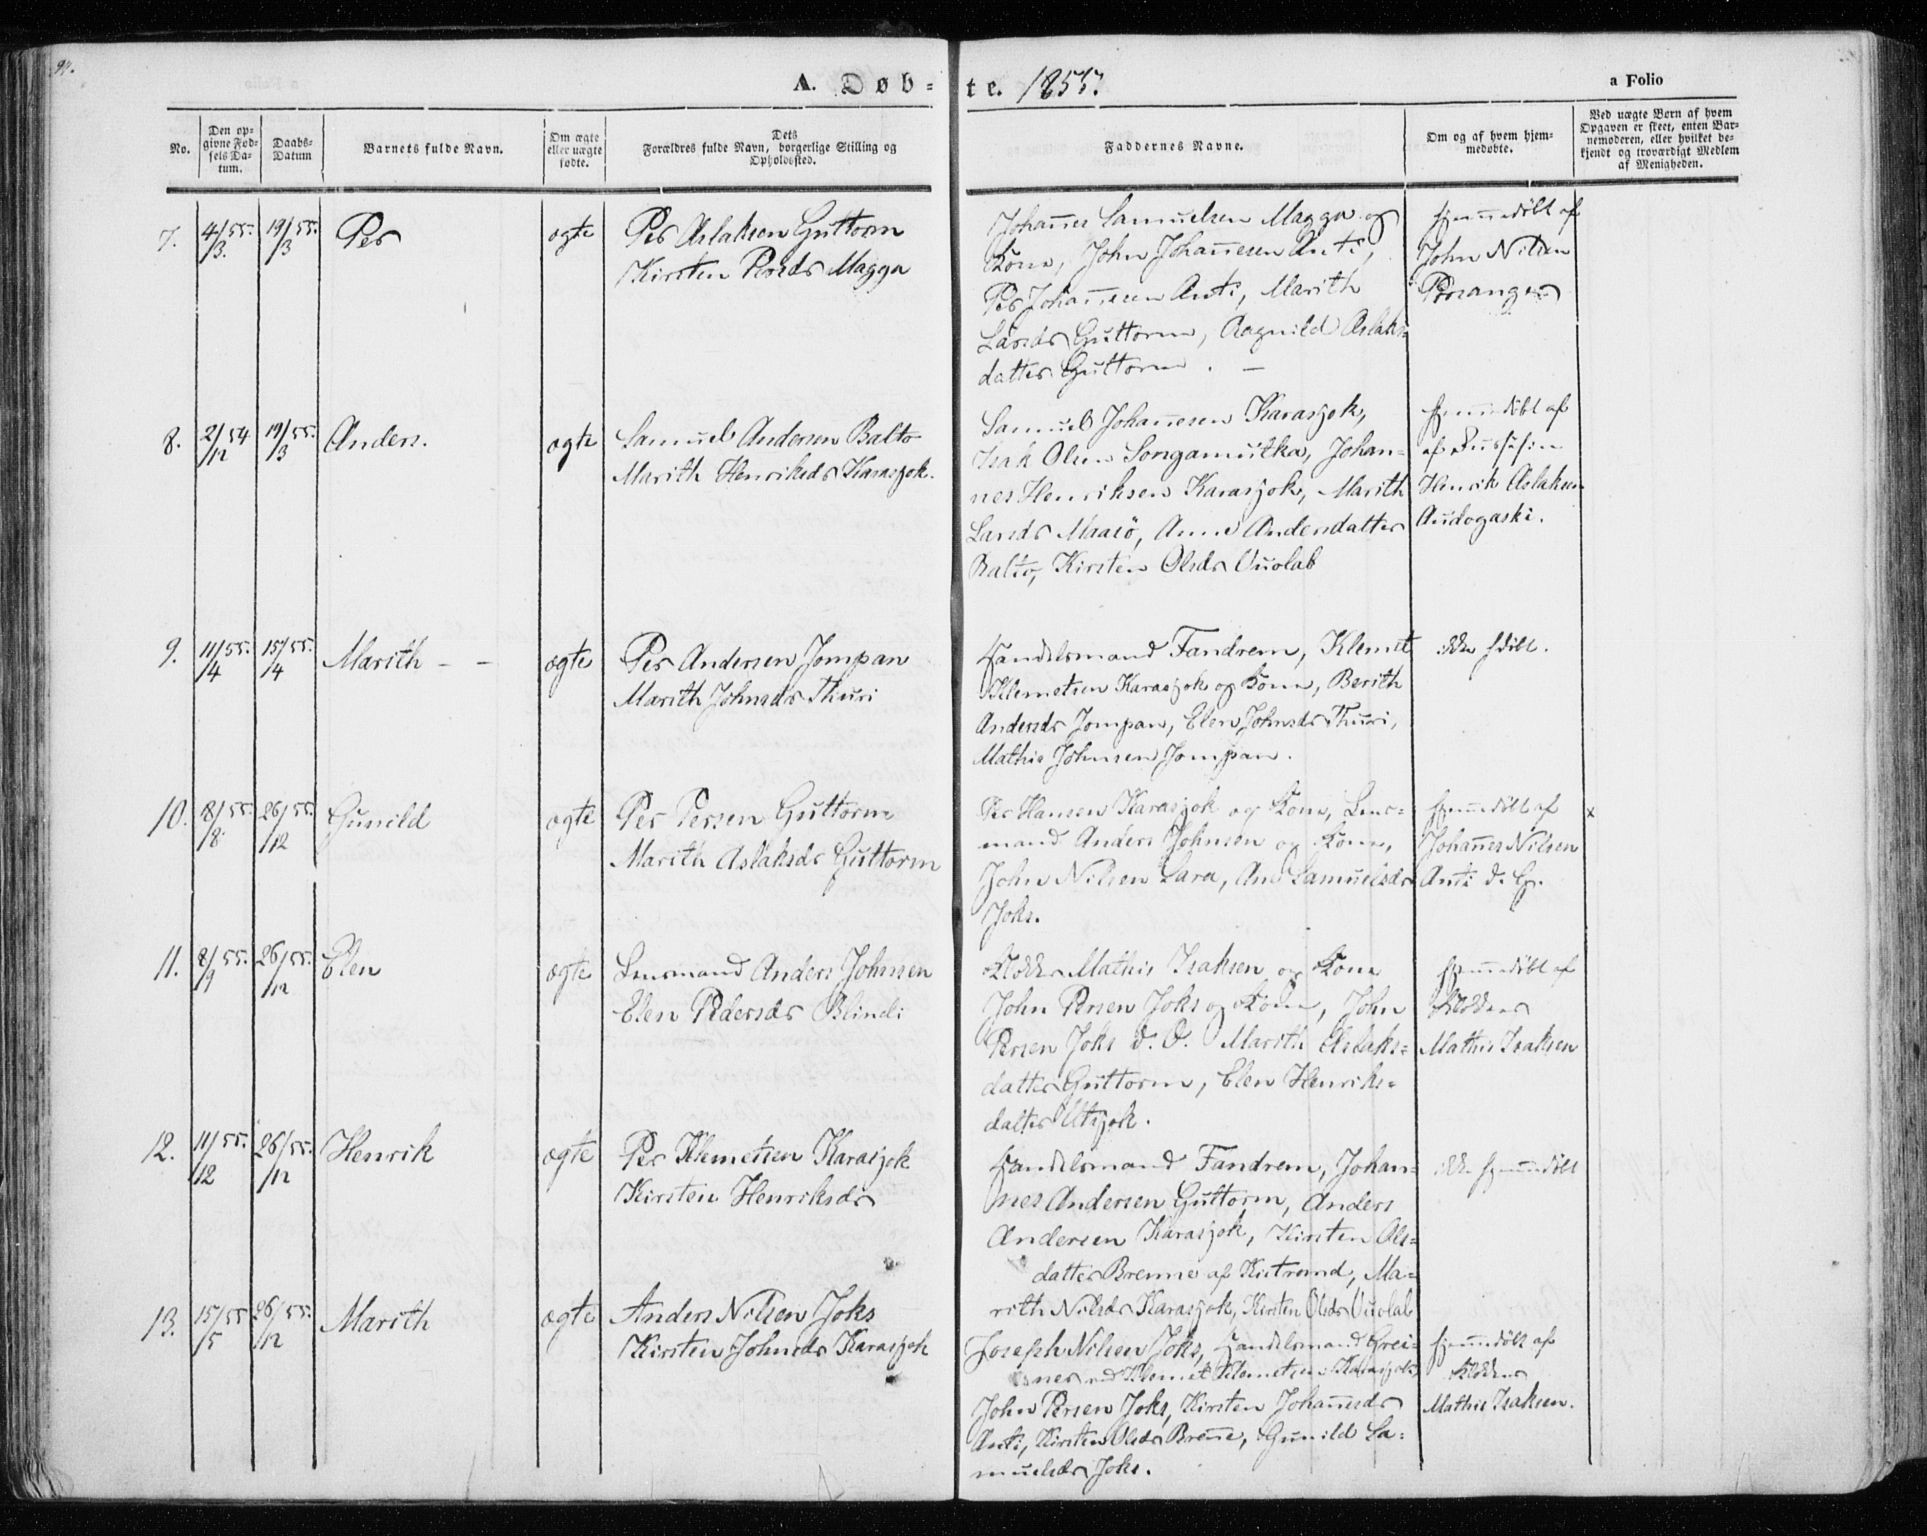 A. Døb- te. 1855.
a Folio
No.
Den op-
givne Fød-
sels Da-
tum.
Daabs-
Datum
Barnets fulde Navn.
Om ægte
eller uægte
fødte.
Dets
Forældres fulde Navn, borgerlige Stilling og
Opholdssted.
Faddernes Navne.
Om og af hvem hjem-
medøbte.
Ved uægte Børn af hvem
Opgaven er skeet, enten Bar-
nemoderen, eller hvilket be-
kjendt og troværdigt Medlem
af Menigheden.
7. 4/3 55. 19/3 55. Per ægte
Per Aslaksen Guttorm
Kirsten Persds Magga
Johannes Samuelsen Magga og
Kone, John Johannesen Anti,
Per Johannesen Anti, Marith
Larsds Guttorm, Ragnild Aslaks-
datter Guttorm. —
hjemmedøbt af
John Nilsen
Porsanger
8. 2/12 54 19/3 55. Anders. ægte
Samuel Andersen Balto
Marith Henriksds Karasjok.
Samuel Johannesen Karasjok,
Isak Olsen Songamutka, Johan-
nes Henriksen Karasjok, Marith
Larsds Maasö, Anne Andersdatter
Balto, Kirsten Olsds Vuolab
hjemmedøbt af
af
Henrik Aslaksen
Audogaski.
9. 11/4 55. 15/4 55. Marith - - ægte
Per Andersen Jompan
Marith Johnsds Thuri
Handelsmand Fandrem, Klemet
Klemetsen Karasjok og Kone, Berith
Andersds Jompan, Elen Johnsds Thuri,
Mathis Johnsen Jompan.
ikke hdøbt.
10. 18/8 55. 26/12 55. Gunild ægte
Per Persen Guttorm
Marith Aslaksds Guttorm
Per Hansen Karasjok og Kone, Lens-
mand Anders Johnsen og Kone,
John Nilsen Lara, Ane Samuelsds
Joks.
hjemmedøbt af
Johannes Nilsen
Anti d. E.
x
11. 8/9 55. 26/12 55. Elen ægte
Lensmand Anders Johnsen
Elen Pedersds Blindi
Klokker Mathis Isaksen og Kone
John Persen Joks og Kone, John
Persen Joks d. Y. Marith Aslaks-
datter Guttorm, Elen Henriks-
datter Utsjok.
hjemmedøbt af
Klokker
Mathis Isaksen
12. 11/12 55. 26/12 55. Henrik ægte
Per Klemetsen Karasjok
Kirsten Henriksds
Handelsmand Fandrem, Johan-
nes Andersen Guttorm, Anders
Andersen Karasjok, Kirsten Ols-
datter Brenne af Kistrand, Ma-
rith Nilsds Karasjok, Kirsten Olsds Vuolab
ikke hjemmedøbt
13. 15/5 55 26/12 55. Marith ægte
Anders Nilsen Joks
Kirsten Johnsds Karasjok
Joseph Nilsen Joks, Handelsmand Grei-
ner Klemet Klemetsen Karasjok
John Persen Joks, Kirsten Johannsds
Anti, Kirsten Olsds Brenne, Gunild Sa-
muelsds Joks.
hjemmedøbt af
Klokker
Mathis Isaksen.